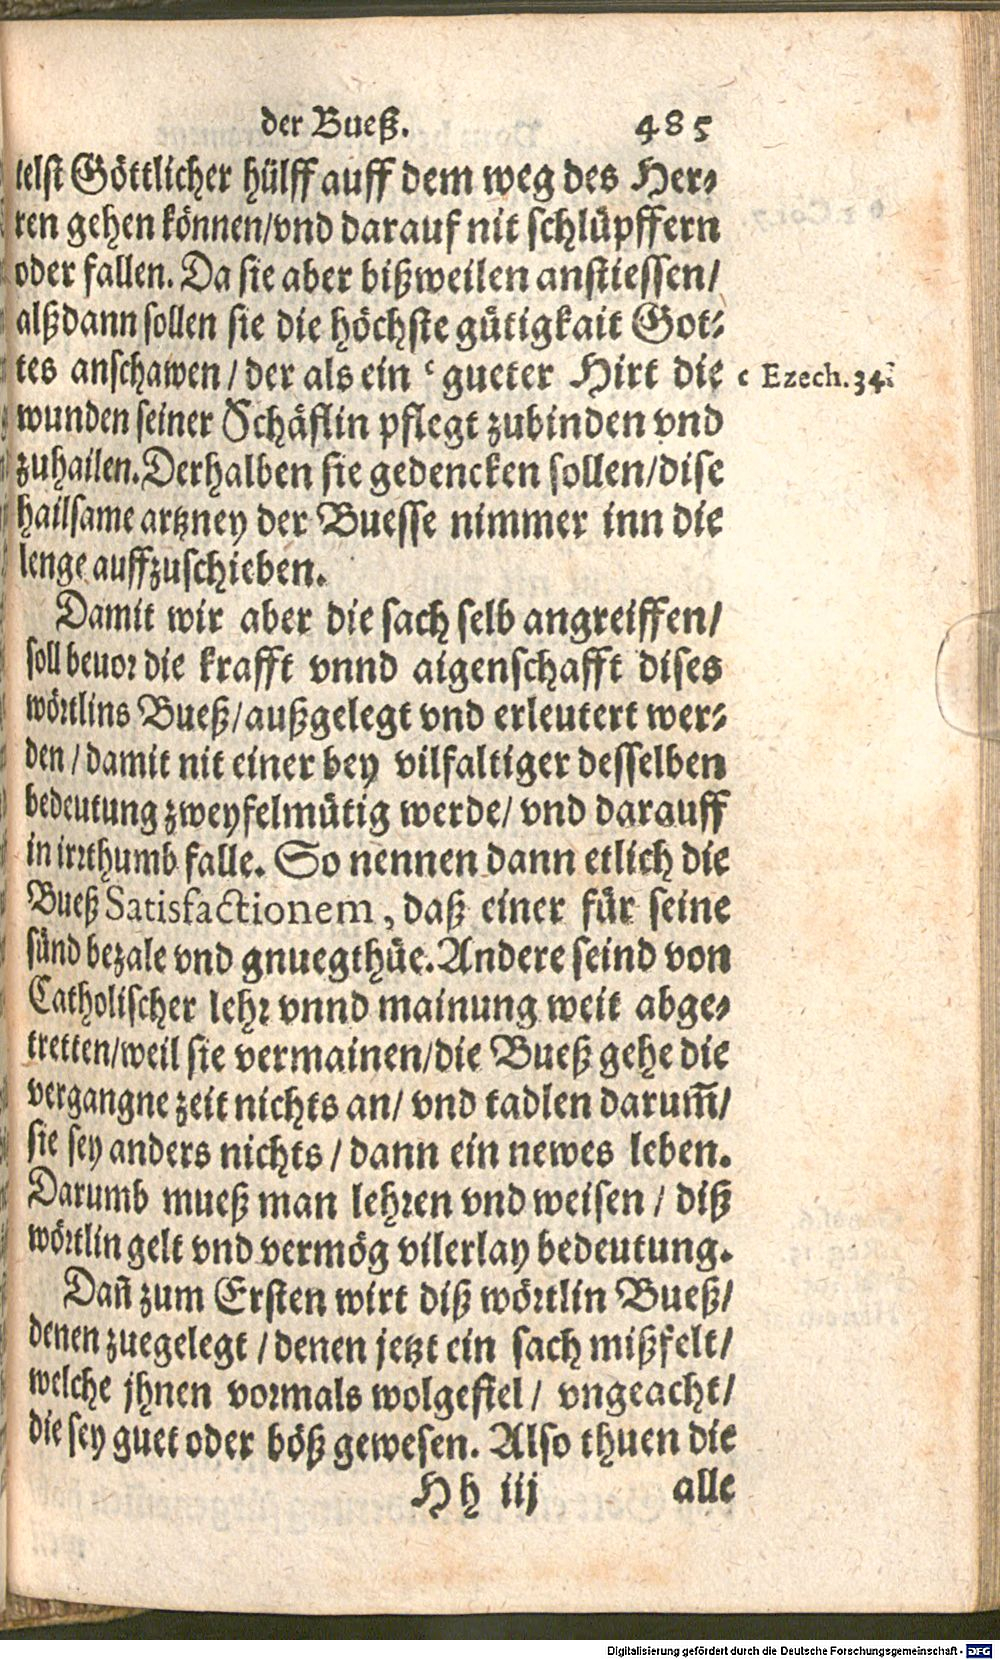 der Bueß. 485
telst Göttlicher hülff auff dem weg des Her⸗
ren gehen können/vnd darauf nit schlüpffern
oder fallen. Da sie aber bißweilen anstiessen/
alßdann sollen sie die höchste gütigkait Got⸗
tes anschawen/der als ein ᶜ gueter Hirt die
c Ezech.34.
wunden seiner Schäflin pflegt zubinden vnd
zuhailen. Derhalben sie gedencken sollen/dise
hailsame artzney der Buesse nimmer inn die
lenge auffzuschieben.
Damit wir aber die sach selb angreiffen/
soll beuor die krafft vnnd aigenschafft dises
wörtlins Bueß/außgelegt vnd erleutert wer⸗
den/damit nit einer bey vilfaltiger desselben
bedeutung zweyfelmütig werde/ vnd darauff
in irrthumb falle. So nennen dann etlich die
Bueß Satisfactionem, daß einer für seine
sünd bezale vnd gnuegthüe. Andere seind von
Catholischer lehr vnnd mainung weit abge⸗
tretten/weil sie vermainen/die Bueß gehe die
vergangne zeit nichts an/ vnd tadlen darum̃/
sie sey anders nichts/dann ein newes leben.
Darumb mueß man lehren vnd weisen/ diß
wörtlin gelt vnd vermög vilerlay bedeutung.
Dañ zum Ersten wirt diß wörtlin Bueß/
denen zuegelegt/denen jetzt ein sach mißfelt/
welche jhnen vormals wolgefiel/ vngeacht/
die sey guet oder böß gewesen. Also thuen die
Hh iij alle
Digitalisierung gefördert durch die Deutsche Forschungsgemeinschaft - DFG